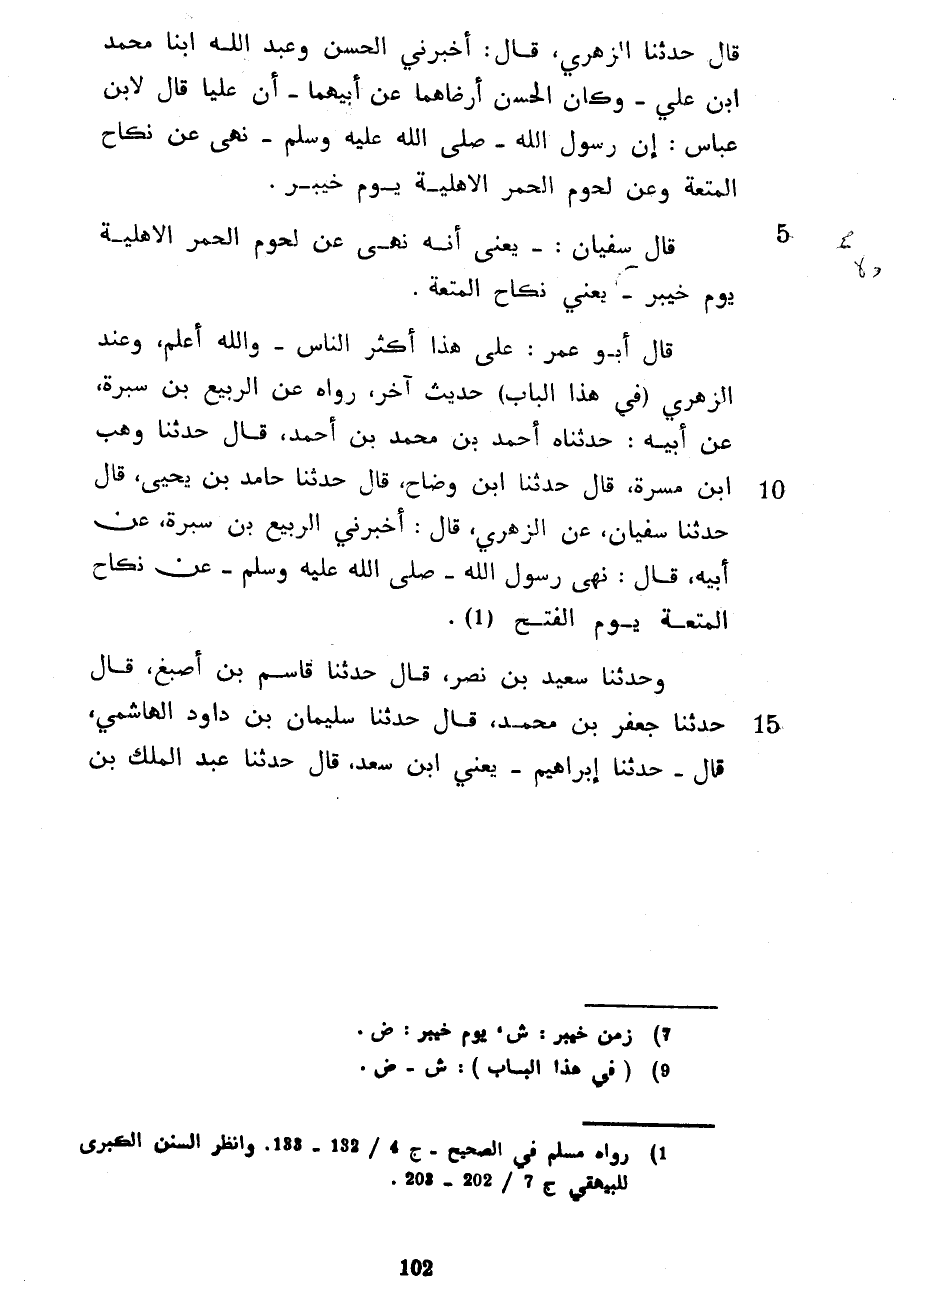 قال حدثنا الزهري، قـال: أخبرني الحسن وعبد اللـه ابنا محمد
ابن علي ـ وكان الحسن أرضاهما عن أبيهما ـ أن عليا قال لابن
عباس : إن رسول الله ـ صلى الله عليه وسلم ـ نهى عن نكاح
المتعة وعن لحوم الحمر الاهليـة يـوم خيبـر .
5 قال سفيان : ـ يعنى أنـه نهـى عن لحوم الحمر الاهليـة
يوم خيبر ـ يعني نكاح المتعة .
قال أبـو عمر : على هذا أكثر الناس ـ والله أعلم، وعند
الزهري (في هذا الباب) حديث آخر، رواه عن الربيع بن سبرة،
عن أبيـه : حدثناه أحمد بن محمد بن أحمد، قـال حدثنا وهب
10 ابن مسرة، قال حدثنا ابن وضاح، قال حدثنا حامد بن يحيى، قال
حدثنا سفيان، عن الزهري، قال : أخبرني الربيع بن سبرة، عن
أبيه، قـال : نهى رسول الله ـ صلى الله عليه وسلم ـ عن نكاح
المتعـة يـوم الفتـح (1) .
وحدثنا سعيد بن نصر، قـال حدثنا قاسـم بن أصبغ، قـال
15 حدثنا جعفر بن محمـد، قـال حدثنا سليمان بن داود الهاشمي،
قال ـ حدثنا إبراهيم ـ يعني ابن سعد، قال حدثنا عبد الملك بن
7) زمن خيبر : ش، يوم خيبر : ض .
9) ( في هذا البـاب ) : ش ـ ض .
1) رواه مسلم في الصحيح ـ ج 4 / 132 ـ 133. وانظر السنن الكبرى
للبيهقي ج 7 / 202 ـ 203 .
102